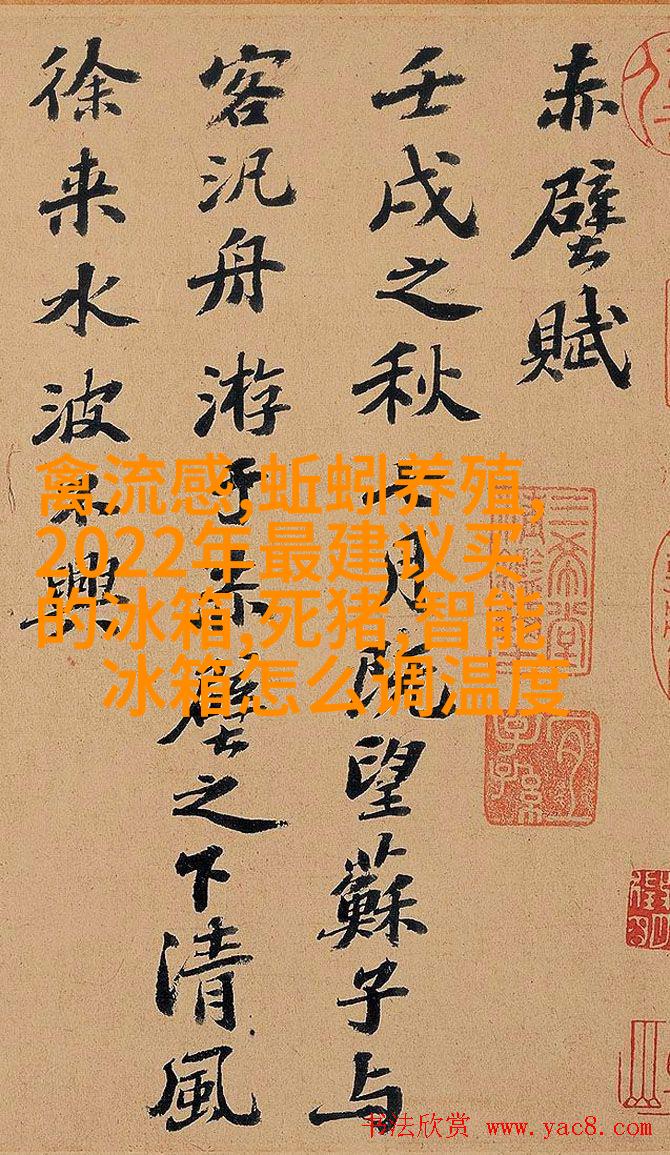 赤壁賦
壬戌之秋七月既望蘇子与
客汎舟游于赤壁之下清風
徐来水波不興
禽流感,蚯蚓养殖,
2022年最建议买
的冰箱,死猪,智能
冰箱怎么调温度
三希堂
宜子孫
书法欣赏 www.yac8.com